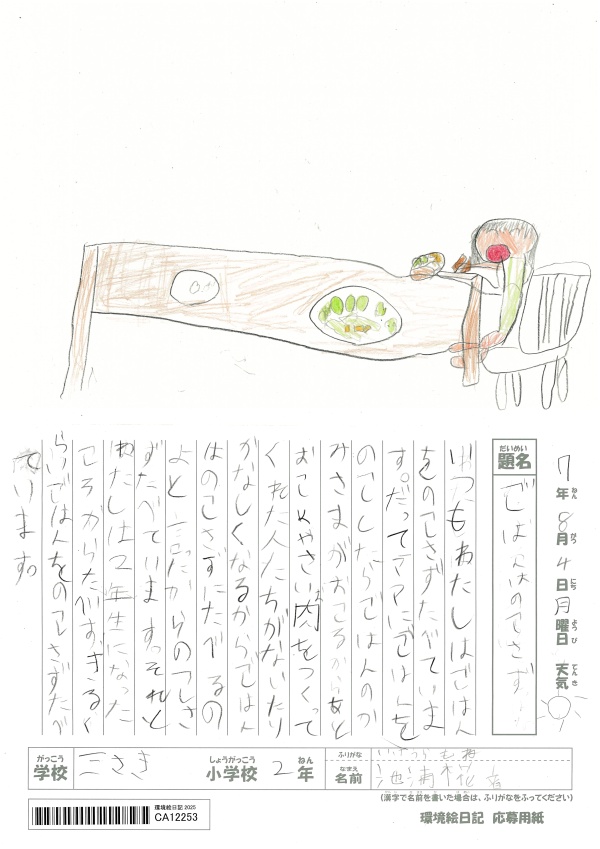 7年8月4日月曜日 天気
ねん がつ にち ようび てんき
だいめい
題名
ごはんはのこさず
いつもわたしはごはん
をのこさずたべていま
す。だってママにごはんを
のこしたらごはんのか
みさまがおこるからあと
おこめややさい、肉をつくって
くれた人たちがないたり
かなしくなるからごはん
はのこさずにたべるの
よと言ったからのこさ
ずたべていますっそれと
わたしは2年生になった
ころからたべずぎるく
らいごはんをのこさずたべ
ています。
がっこう
学校
三さき
しょうがっこう
小学校
2
ねん
年
ふりがな
なまえ
名前
池浦
(漢字で名前を書いた場合は、ふりがなをふってください)
環境絵日記 2025
CA12253
環境絵日記 応募用紙